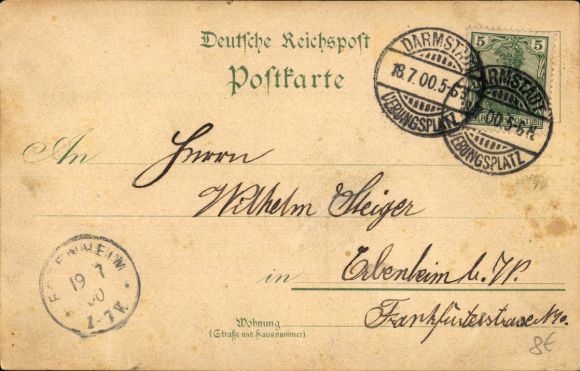 Deutsche Reichspost
Postkarte
DARMSTADT
18.7.00.5-6N.
UEBUNGSPLATZ
5 5
DARMSTADT
00.5-6N.
UEBUNGSPLATZ
An Herrn
Wilhelm Steiger
in Erbenheim b. W.
Frankfurterstrasse No.
Wohnung
(Straße und Hausnummer)
19 7
00
1-7V.
8€